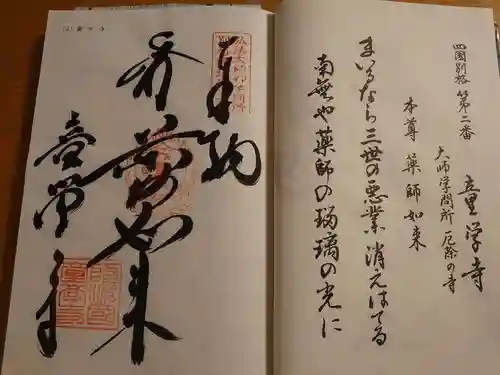 四国別格 第二番
童学寺
大師学問所 厄除の寺
本尊 薬師如来
まいるなら三世の悪業消えはてる
南無や薬師の瑠璃の光に
奉納
童学寺